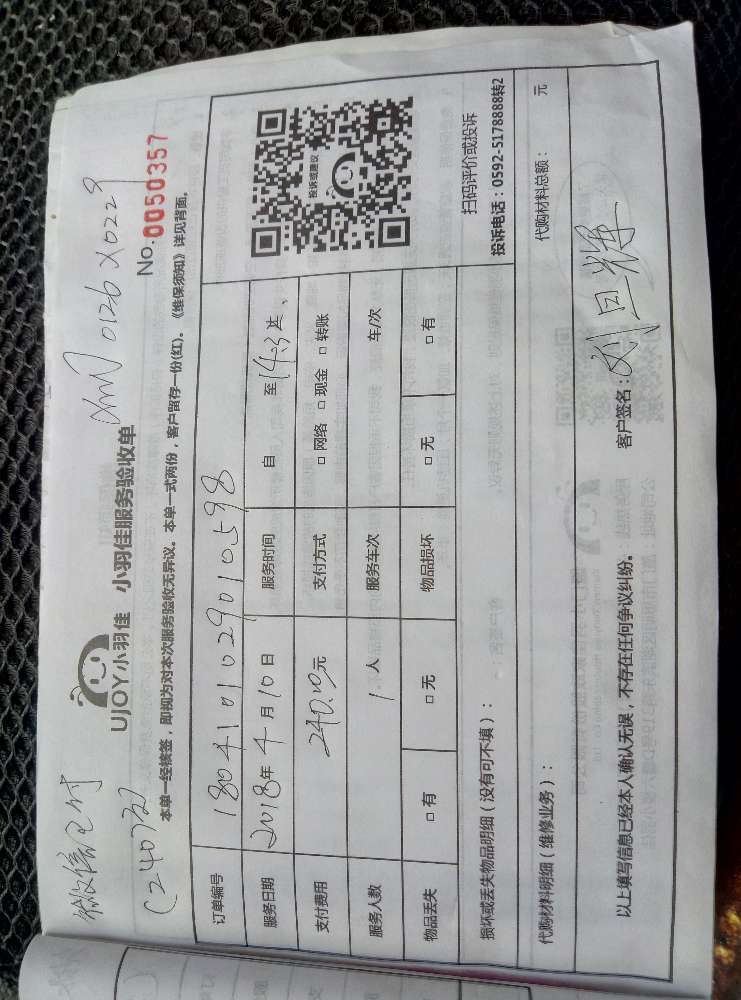 微信已付
(240元)
UJOY小羽佳 小羽佳服务验收单
0126 X0229
No. 0050357
本单一经核签，即视为对本次服务验收无异议。本单一式两份，客户留存一份(红)。《维保须知》详见背面。
订单编号 180410102901 0598
服务日期 2018年 4 月 10 日 服务时间 自 至 14:3
支付费用 240.00元 支付方式 □ 网络 □ 现金 □ 转账
服务人数 1 人 服务车次 车/次
物品丢失 □ 有 □ 无 物品损坏 □ 无 □ 有
投诉或建议
扫码评价或投诉
投诉电话：0592-5178888转2
损坏或丢失物品明细（没有可不填）：
代购材料明细（维修业务）： 代购材料总额： 元
以上填写信息已经本人确认无误，不存在任何争议纠纷。 客户签名：刘旦辉